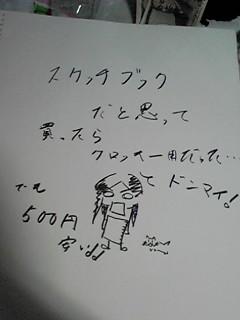 スケッチブック
だと思って
買ったら
クロッキー用だった…
て ドンマイ!
でも
500円
安いよ